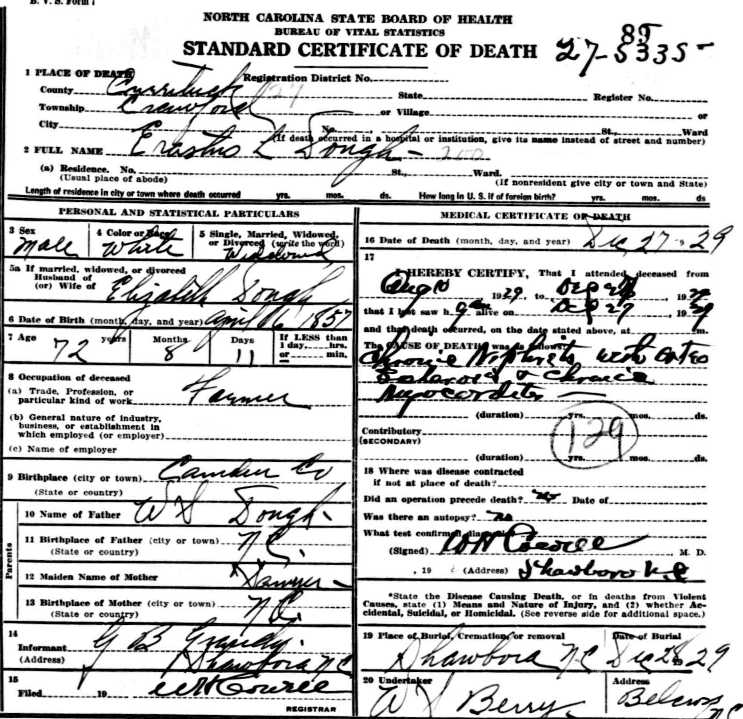 B. V. S. Form 1
NORTH CAROLINA STATE BOARD OF HEALTH
BUREAU OF VITAL STATISTICS
STANDARD CERTIFICATE OF DEATH
85
27-5335-
1 PLACE OF DEATH
Registration District No.
County Currituck State Register No.
Township Crawford or Village or
City No. St., Ward
(If death occurred in a hospital or institution, give its name instead of street and number)
2 FULL NAME Erastus L Dough
(a) Residence. No. St., Ward.
(Usual place of abode) (If nonresident give city or town and State)
Length of residence in city or town where death occurred yrs. mos. ds. How long in U. S. if of foreign birth? yrs. mos. ds.
PERSONAL AND STATISTICAL PARTICULARS
3 Sex 4 Color or Race 5 Single, Married, Widowed, or Divorced (write the word)
Male White Widowed
5a If married, widowed, or divorced
Husband of
(or) Wife of Elizabeth Dough
6 Date of Birth (month, day, and year) April 16 1857
7 Age years Months Days If LESS than
1 day, hrs.
or min.
72 8 11
8 Occupation of deceased
(a) Trade, Profession, or
particular kind of work Farmer
(b) General nature of industry,
business, or establishment in
which employed (or employer)
(c) Name of employer
9 Birthplace (city or town) Camden Co
(State or country)
Parents
10 Name of Father W S Dough
11 Birthplace of Father (city or town) N.C.
(State or country)
12 Maiden Name of Mother Sawyer
13 Birthplace of Mother (city or town) N.C.
(State or country)
14
Informant G B Grandy
(Address) Shawboro N.C
15
Filed 19 W H Cowell
REGISTRAR
MEDICAL CERTIFICATE OF DEATH
16 Date of Death (month, day, and year) Dec 27 1929
17
I HEREBY CERTIFY, That I attended deceased from
Aug 10 1929, to Dec 27, 1929
that I last saw h alive on Dec 27, 1929
and that death occurred, on the date stated above, at m.
The CAUSE OF DEATH was as follows:
Chronic Nephritis with
& Chronic
Myocarditis
(duration) yrs. mos. ds.
129
Contributory
(SECONDARY)
(duration) yrs. mos. ds.
18 Where was disease contracted
if not at place of death?
Did an operation precede death? no Date of
Was there an autopsy? no
What test confirmed diagnosis?
(Signed) W H Cowell M. D.
, 19 (Address) Shawboro N.C
*State the Disease Causing Death, or in deaths from Violent
Causes, state (1) Means and Nature of Injury, and (2) whether Ac-
cidental, Suicidal, or Homicidal. (See reverse side for additional space.)
19 Place of Burial, Cremation or removal Date of Burial
Shawboro N.C Dec 28 29
20 Undertaker Address
W S Berry Belcross N.C